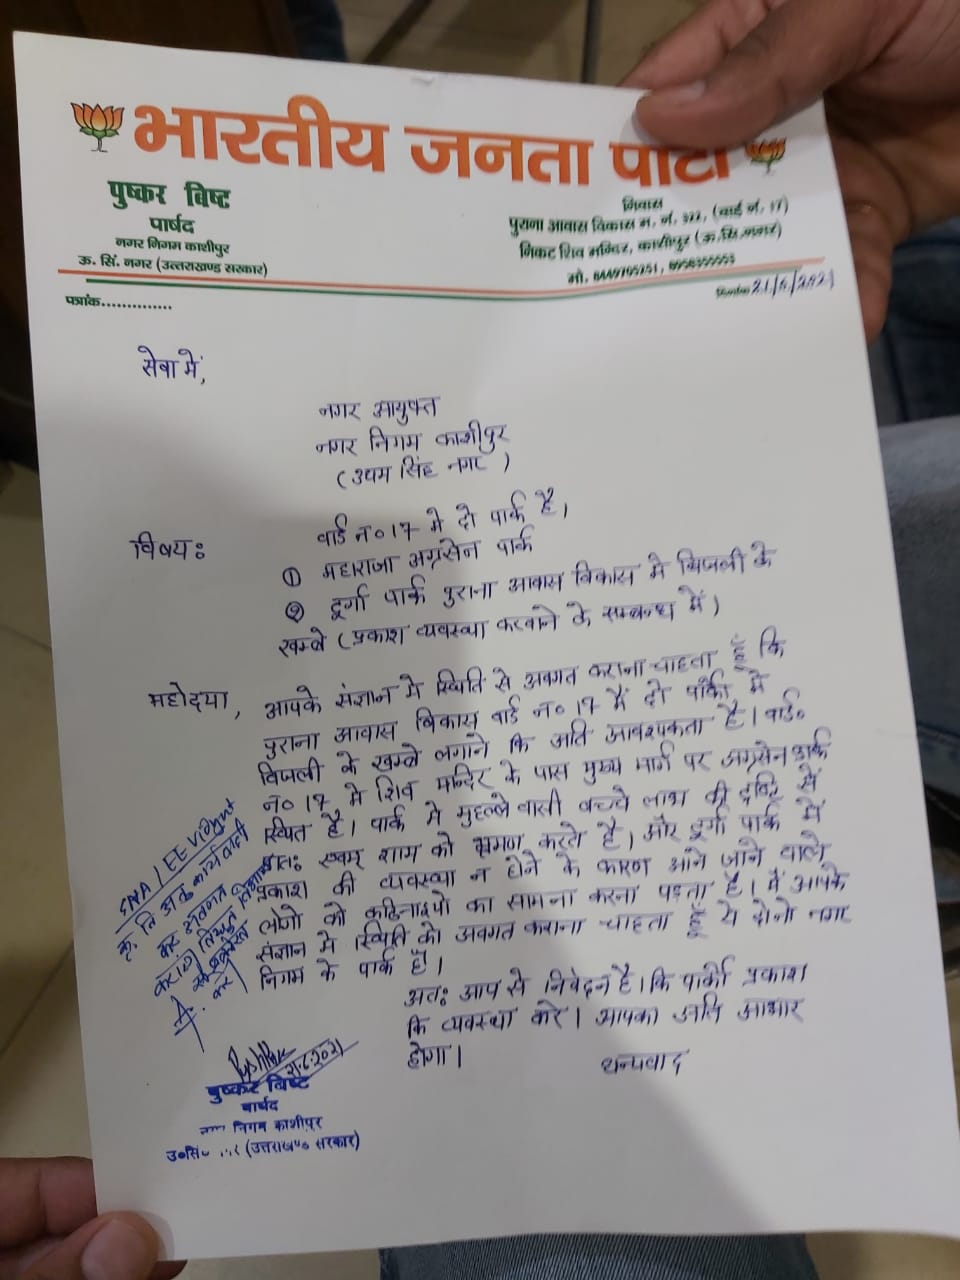 भारतीय जनता पार्टी
पुष्कर बिष्ट
पार्षद
नगर निगम काशीपुर
ऊ. सिं. नगर (उत्तराखण्ड सरकार)
निवास
पुराना आवास विकास म. नं. 322, (वार्ड नं. 17)
निकट शिव मन्दिर, काशीपुर (ऊ.सि.नगर)
मो.
पत्रांक..............
दिनांक 21/6/2021
सेवा में,
नगर आयुक्त
नगर निगम काशीपुर
(उधम सिंह नगर)
विषयः
वार्ड न० 17 मे दो पार्क है,
① महाराजा अग्रसेन पार्क
② दुर्गा पार्क पुराना आवास विकास मे बिजली के
खम्बे (प्रकाश व्यवस्था करवाने के सम्बन्ध में)
महोदया, आपके संज्ञान मे स्थिति से अवगत कराना चाहता हूँ कि
पुराना आवास विकास वार्ड न० 17 में दो पार्को में
बिजली के खम्बे लगाने कि अति आवश्यकता है। वार्ड०
न० 17 मे शिव मन्दिर के पास मुख्य मार्ग पर अग्रसेन पार्क
स्थित है। पार्क मे मुहल्ले वासी बच्चे लाभ की द्रष्टि से
शाम को भ्रमण करते है। और दुर्गा पार्क में
प्रकाश की व्यवस्था न होने के कारण आने जाने वाले
लोगो को कठिनाइयो का सामना करना पडता है। मैं आपके
संज्ञान मे स्थिति को अवगत कराना चाहता हूँ ये दोनो नगर
निगम के पार्क है।
अतः आप से निवेदन है। कि पार्को प्रकाश
कि व्यवस्था करे। आपका अति आभार
होगा।
धन्यवाद
/ EE Vidyut
कर अवगत
विद्युत विभाग
करें
21.6.2021
पुष्कर बिष्ट
पार्षद
निगम काशीपुर
उ०सिं० (उत्तराखण्ड सरकार)